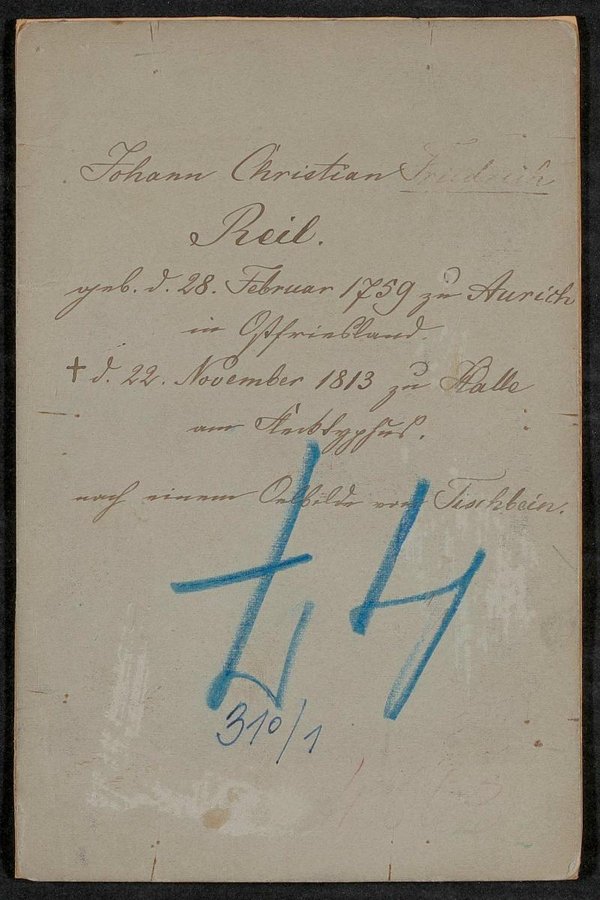 Johann Christian Friedrich
Reil.
geb. d. 28. Februar 1759 zu Aurich
in Ostfriesland.
† d. 22. November 1813 zu Halle
am Flecktyphus.
nach einem Oelbilde von Tischbein.
310/1